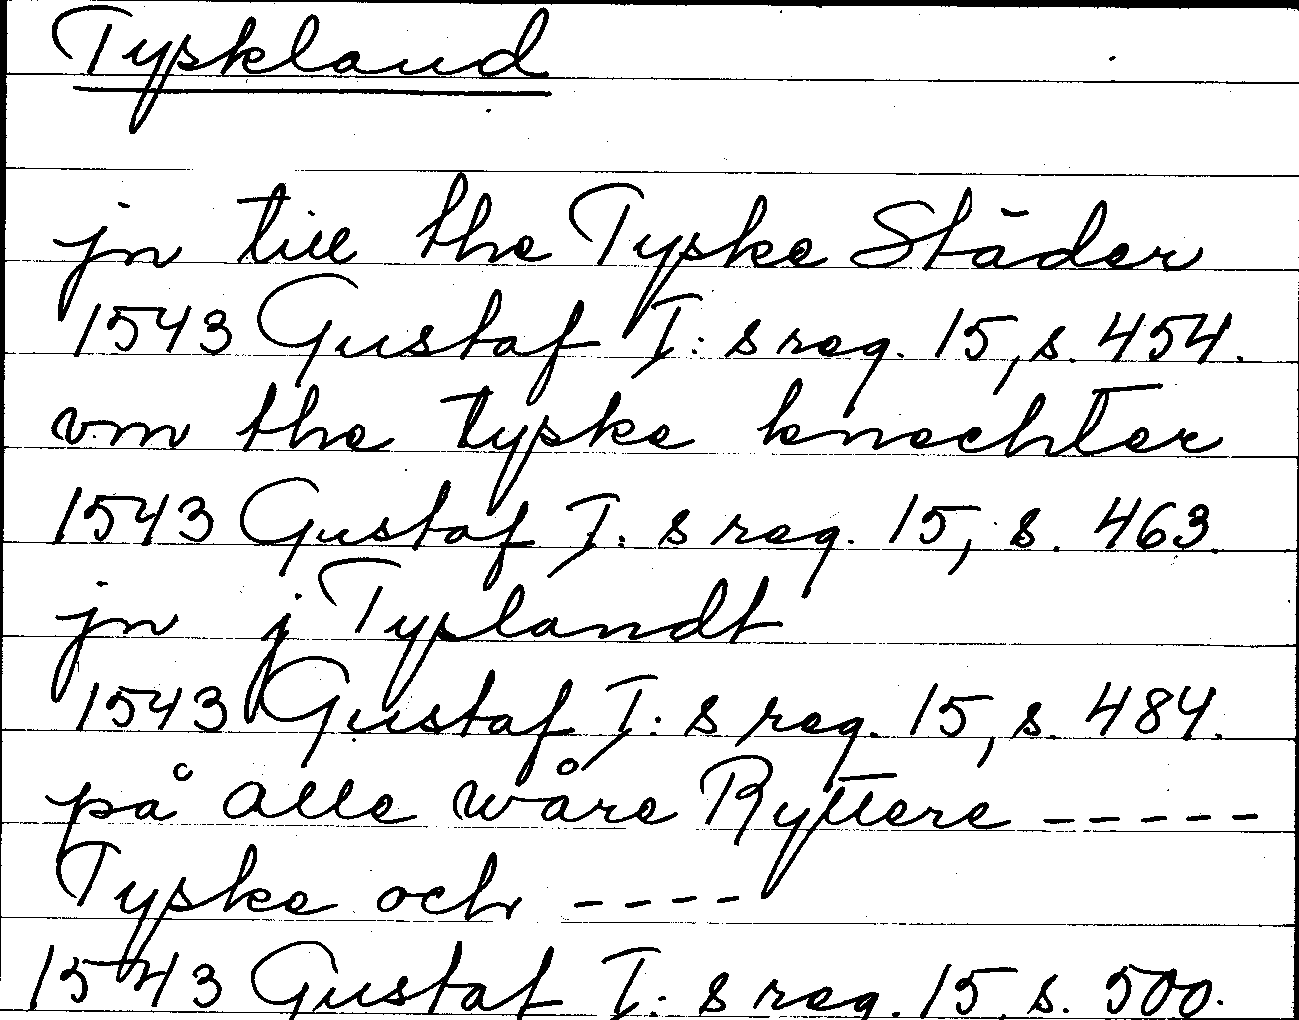 Tyskland
jn till the Tyske Städer
1543 Gustaf I:s reg. 15, s. 454.
vm the tyske knechter
1543 Gustaf I:s reg. 15, s. 463.
jn j Tyslandt
1543 Gustaf I:s reg. 15, s. 484.
på alle wåre Ryttere -----
Tyske och ----
1543 Gustaf I:s reg. 15, s. 500.